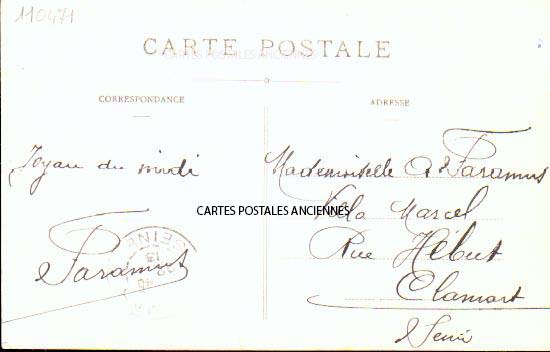 110471
CARTE POSTALE
CARTES POSTALES ANCIENNES
CORRESPONDANCE
ADRESSE
Joyau du midi
Paramus
SEINE
Mademoiselle A. Paramus
Villa Marcel
Rue Hébert
Clamart
Seine
CARTES POSTALES ANCIENNES